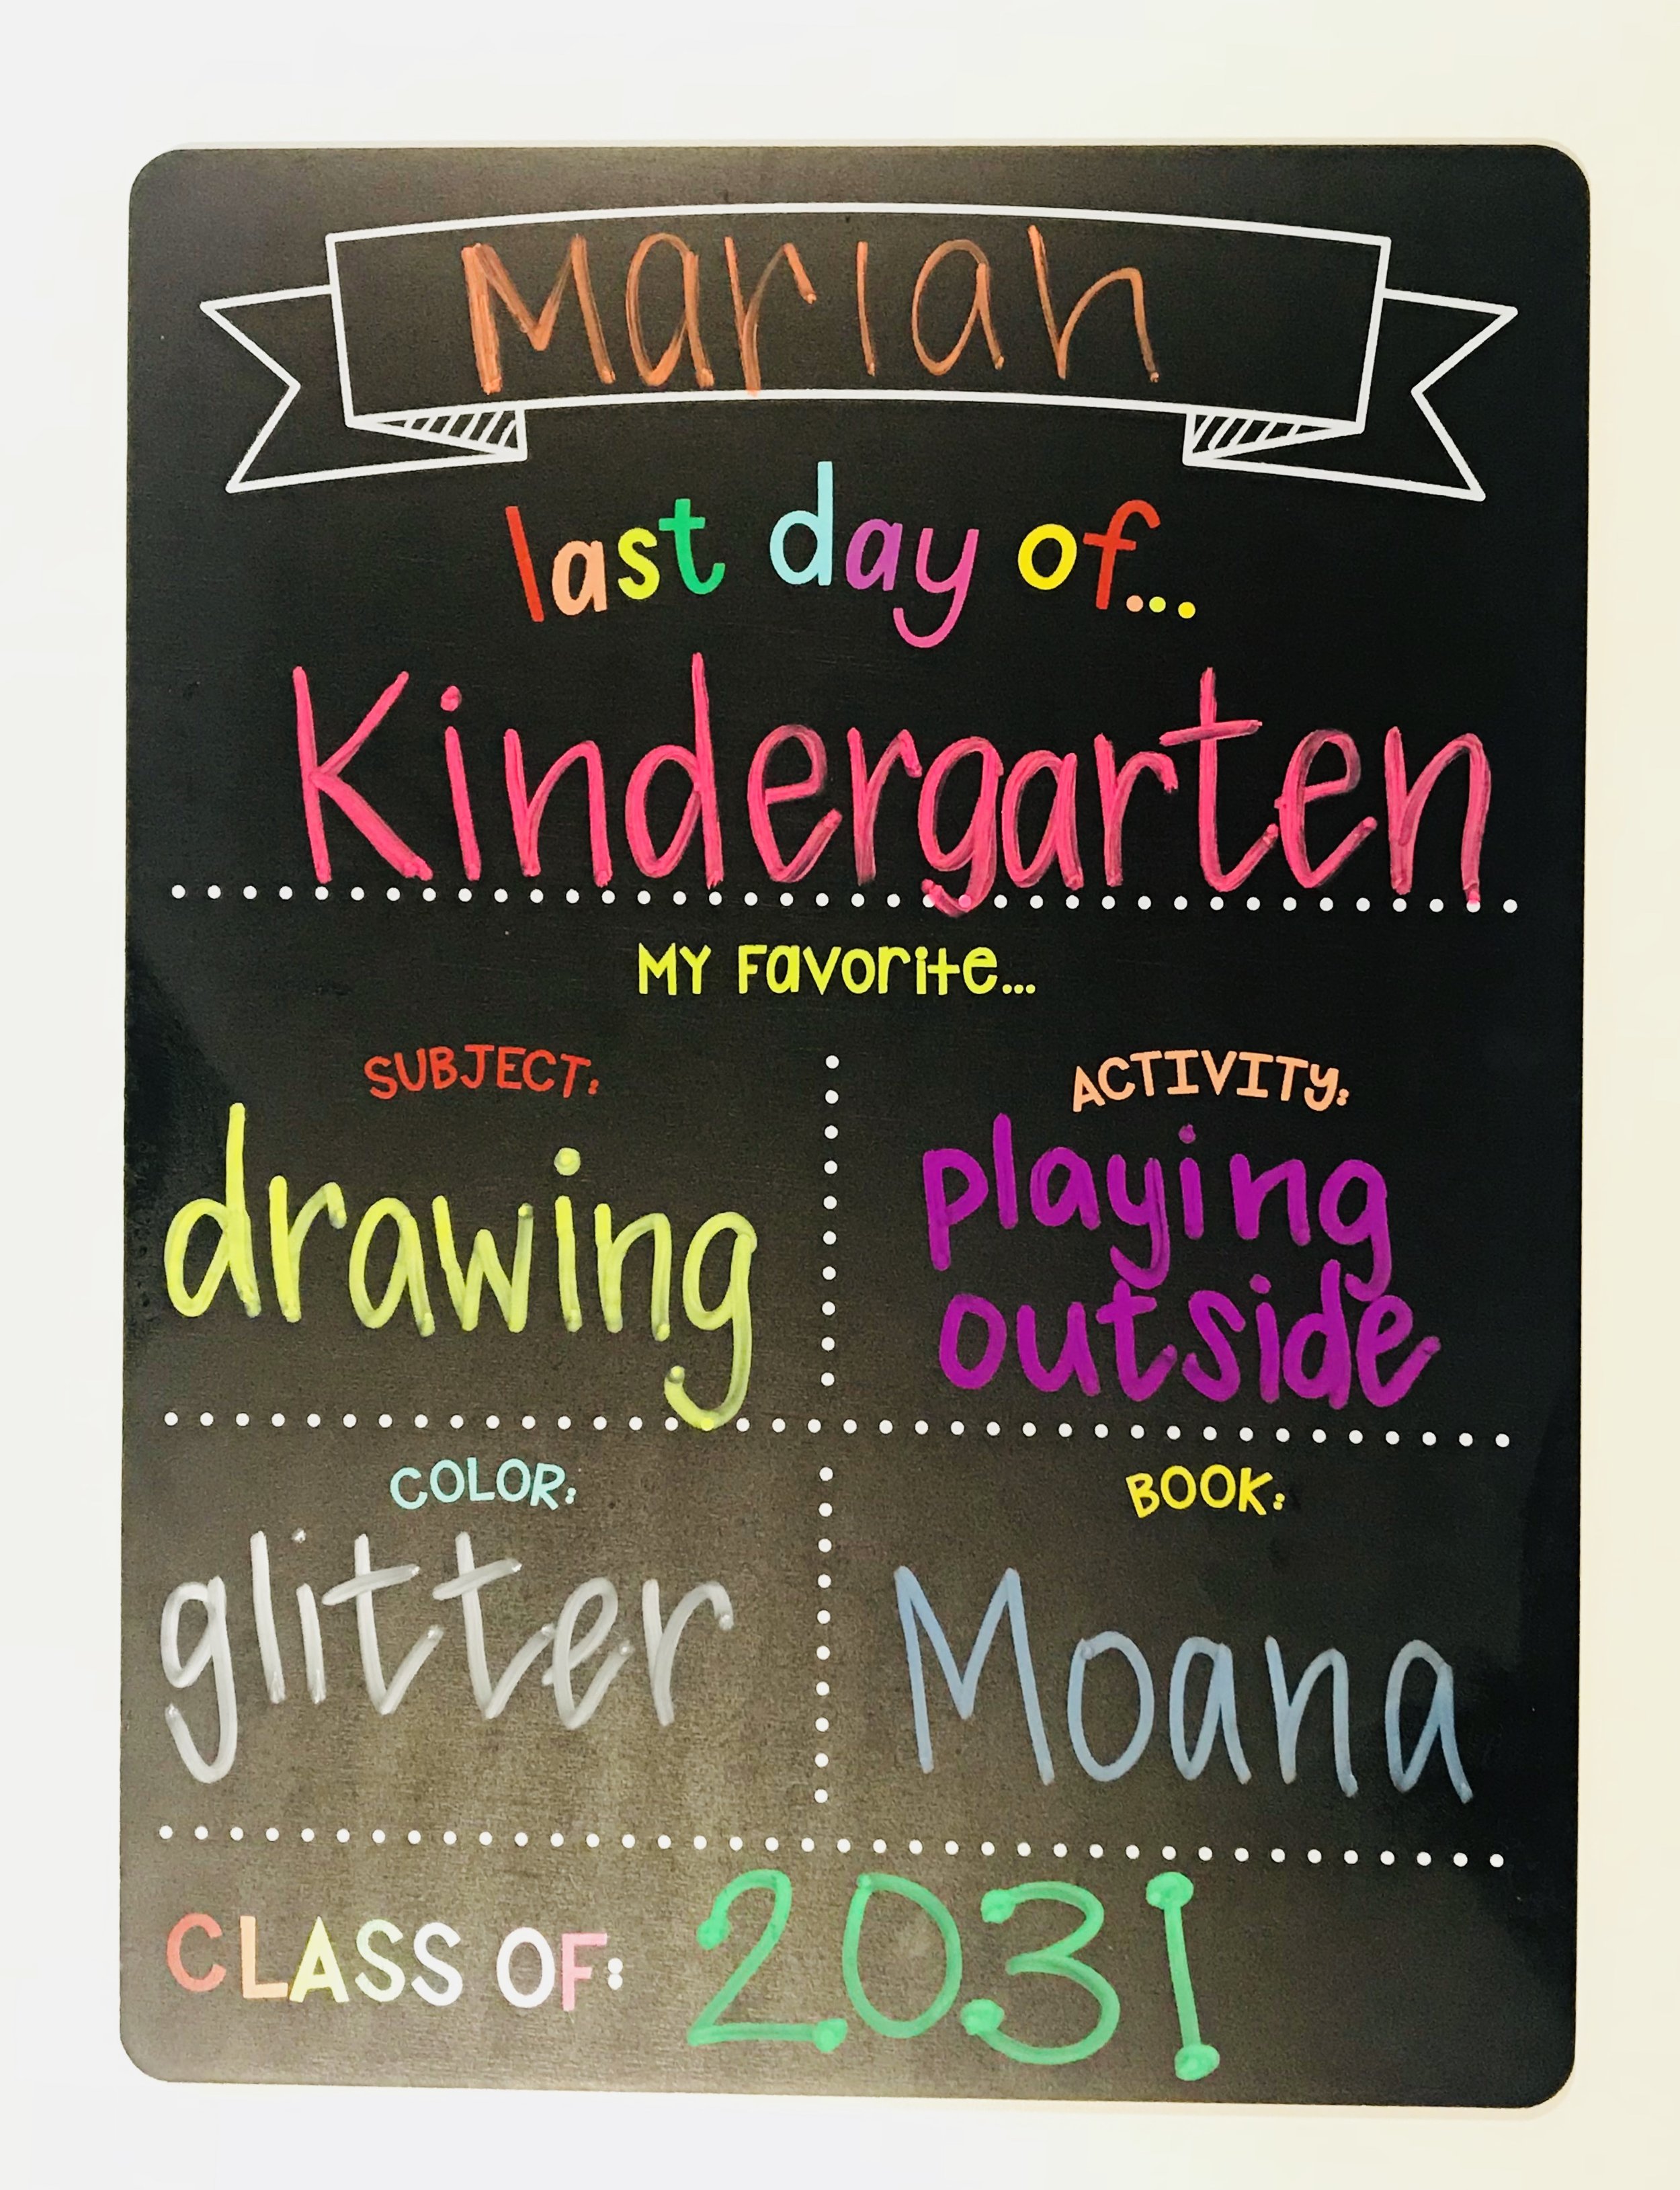 Mariah
last day of...
Kindergarten
MY Favorite...
SUBJECT:
drawing
ACTIVITY:
playing
outside
COLOR:
glitter
BOOK:
Moana
CLASS OF: 2031